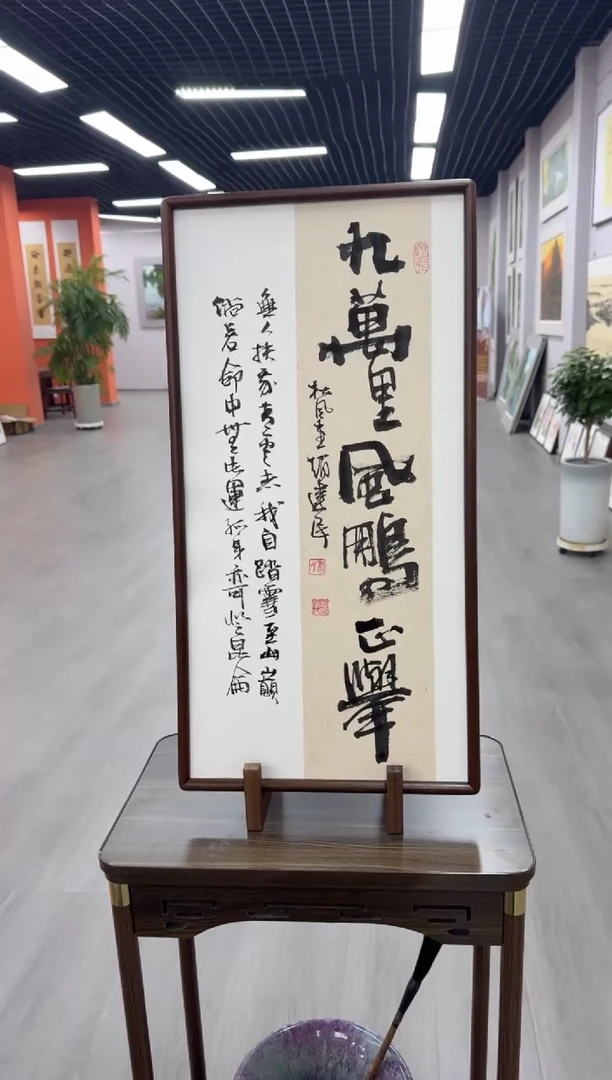 九萬里風鵬正舉
松風堂
無人扶我青雲志我自踏雪至山巔
倘若命中無此運孤身亦可登昆侖